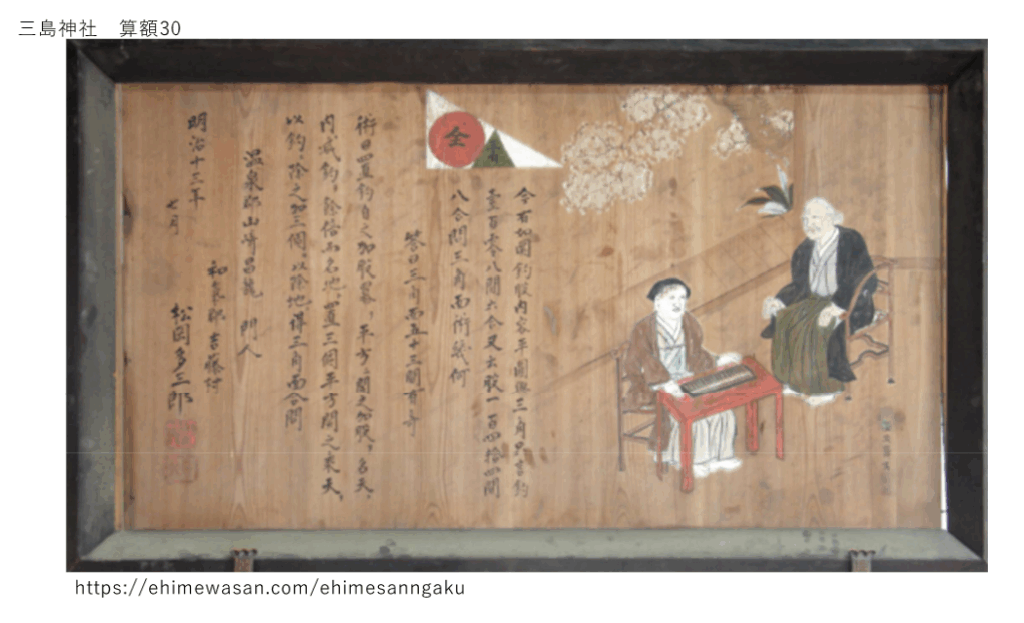 三島神社 算額30
全
今有如圖鈎股内容平圓與三角只言鈎
壹百零八間六合又云股一百四拾四間
八合問三角面術幾何
答曰三角面五十三間有奇
術曰置鈎自之加股冪平方開之加股名天
内減鈎餘倍而名地置三個平方開之乗天
以鈎除之加三個以除地得三角面合問
温泉郡山崎昌龍 門人
明治十三年
七月
和気郡吉藤村
松岡多三郎
https://ehimewasan.com/ehimesanngaku